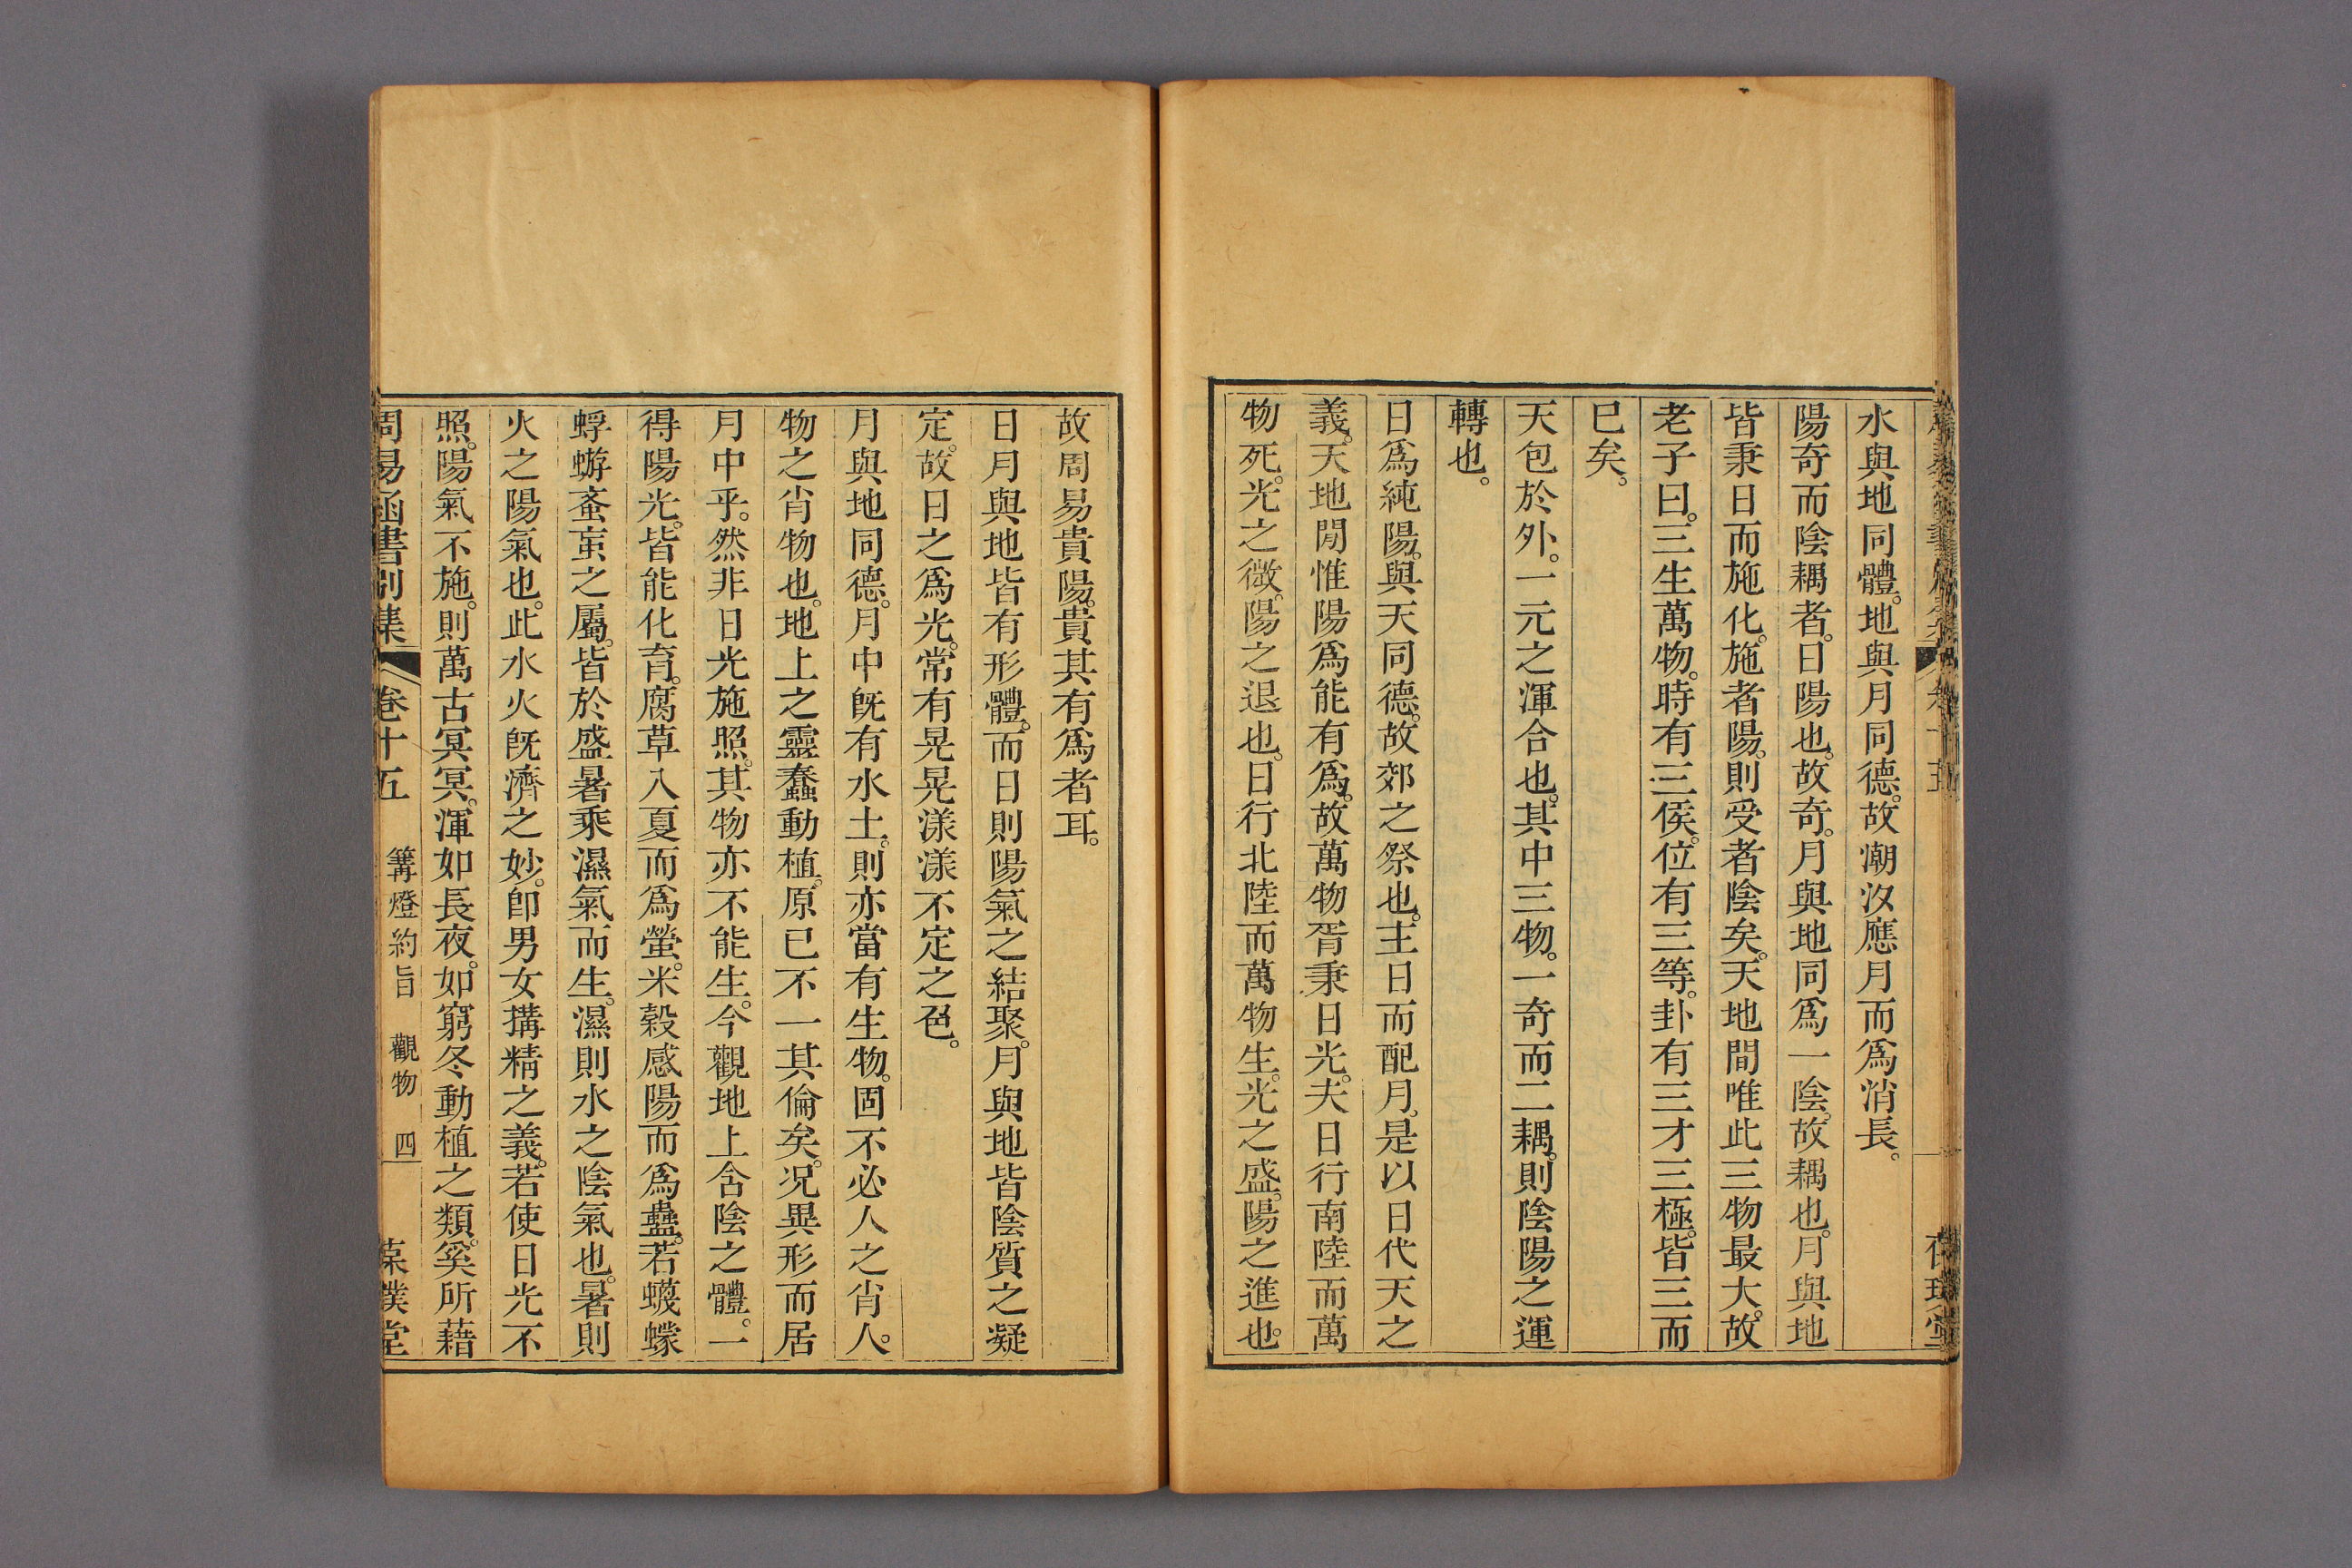 水與地同體。地與月同德。故潮汐應月而爲消長。
陽奇而陰耦者。日陽也。故奇。月與地同爲一陰。故耦也。月與地
皆秉日而施化。施者陽。則受者陰矣。天地間唯此三物最大。故
老子曰。三生萬物。時有三侯。位有三等。卦有三才三極。皆三而
巳矣。
天包於外。一元之渾合也。其中三物。一奇而二耦。則陰陽之運
轉也。
日爲純陽。與天同德。故郊之祭也。主日而配月。是以日代天之
義。天地閒惟陽爲能有爲。故萬物胥秉日光。夫日行南陸而萬
物死。光之微。陽之退也。日行北陸而萬物生。光之盛。陽之進也。
故周易貴陽。貴其有爲者耳。
日月與地皆有形體。而日則陽氣之結聚。月與地皆陰質之凝
定。故日之爲光。常有晃晃漾漾不定之色。
月與地同德。月中旣有水土。則亦當有生物。固不必人之肖人。
物之肖物也。地上之靈蠢動植。原已不一其倫矣。况異形而居
月中乎。然非日光施照。其物亦不能生。今觀地上含陰之體。一
得陽光。皆能化育。腐草入夏而爲螢。米穀感陽而爲蠱。若蠛蠓
蜉蝣蚉䖟之屬。皆於盛暑乘濕氣而生。濕則水之陰氣也。暑則
火之陽氣也。此水火旣濟之妙。卽男女搆精之義。若使日光不
照。陽氣不施。則萬古冥冥。渾如長夜。如窮冬動植之類。奚所藉
周易函書別集 卷十五 篝燈約旨 觀物 四 葆璞堂